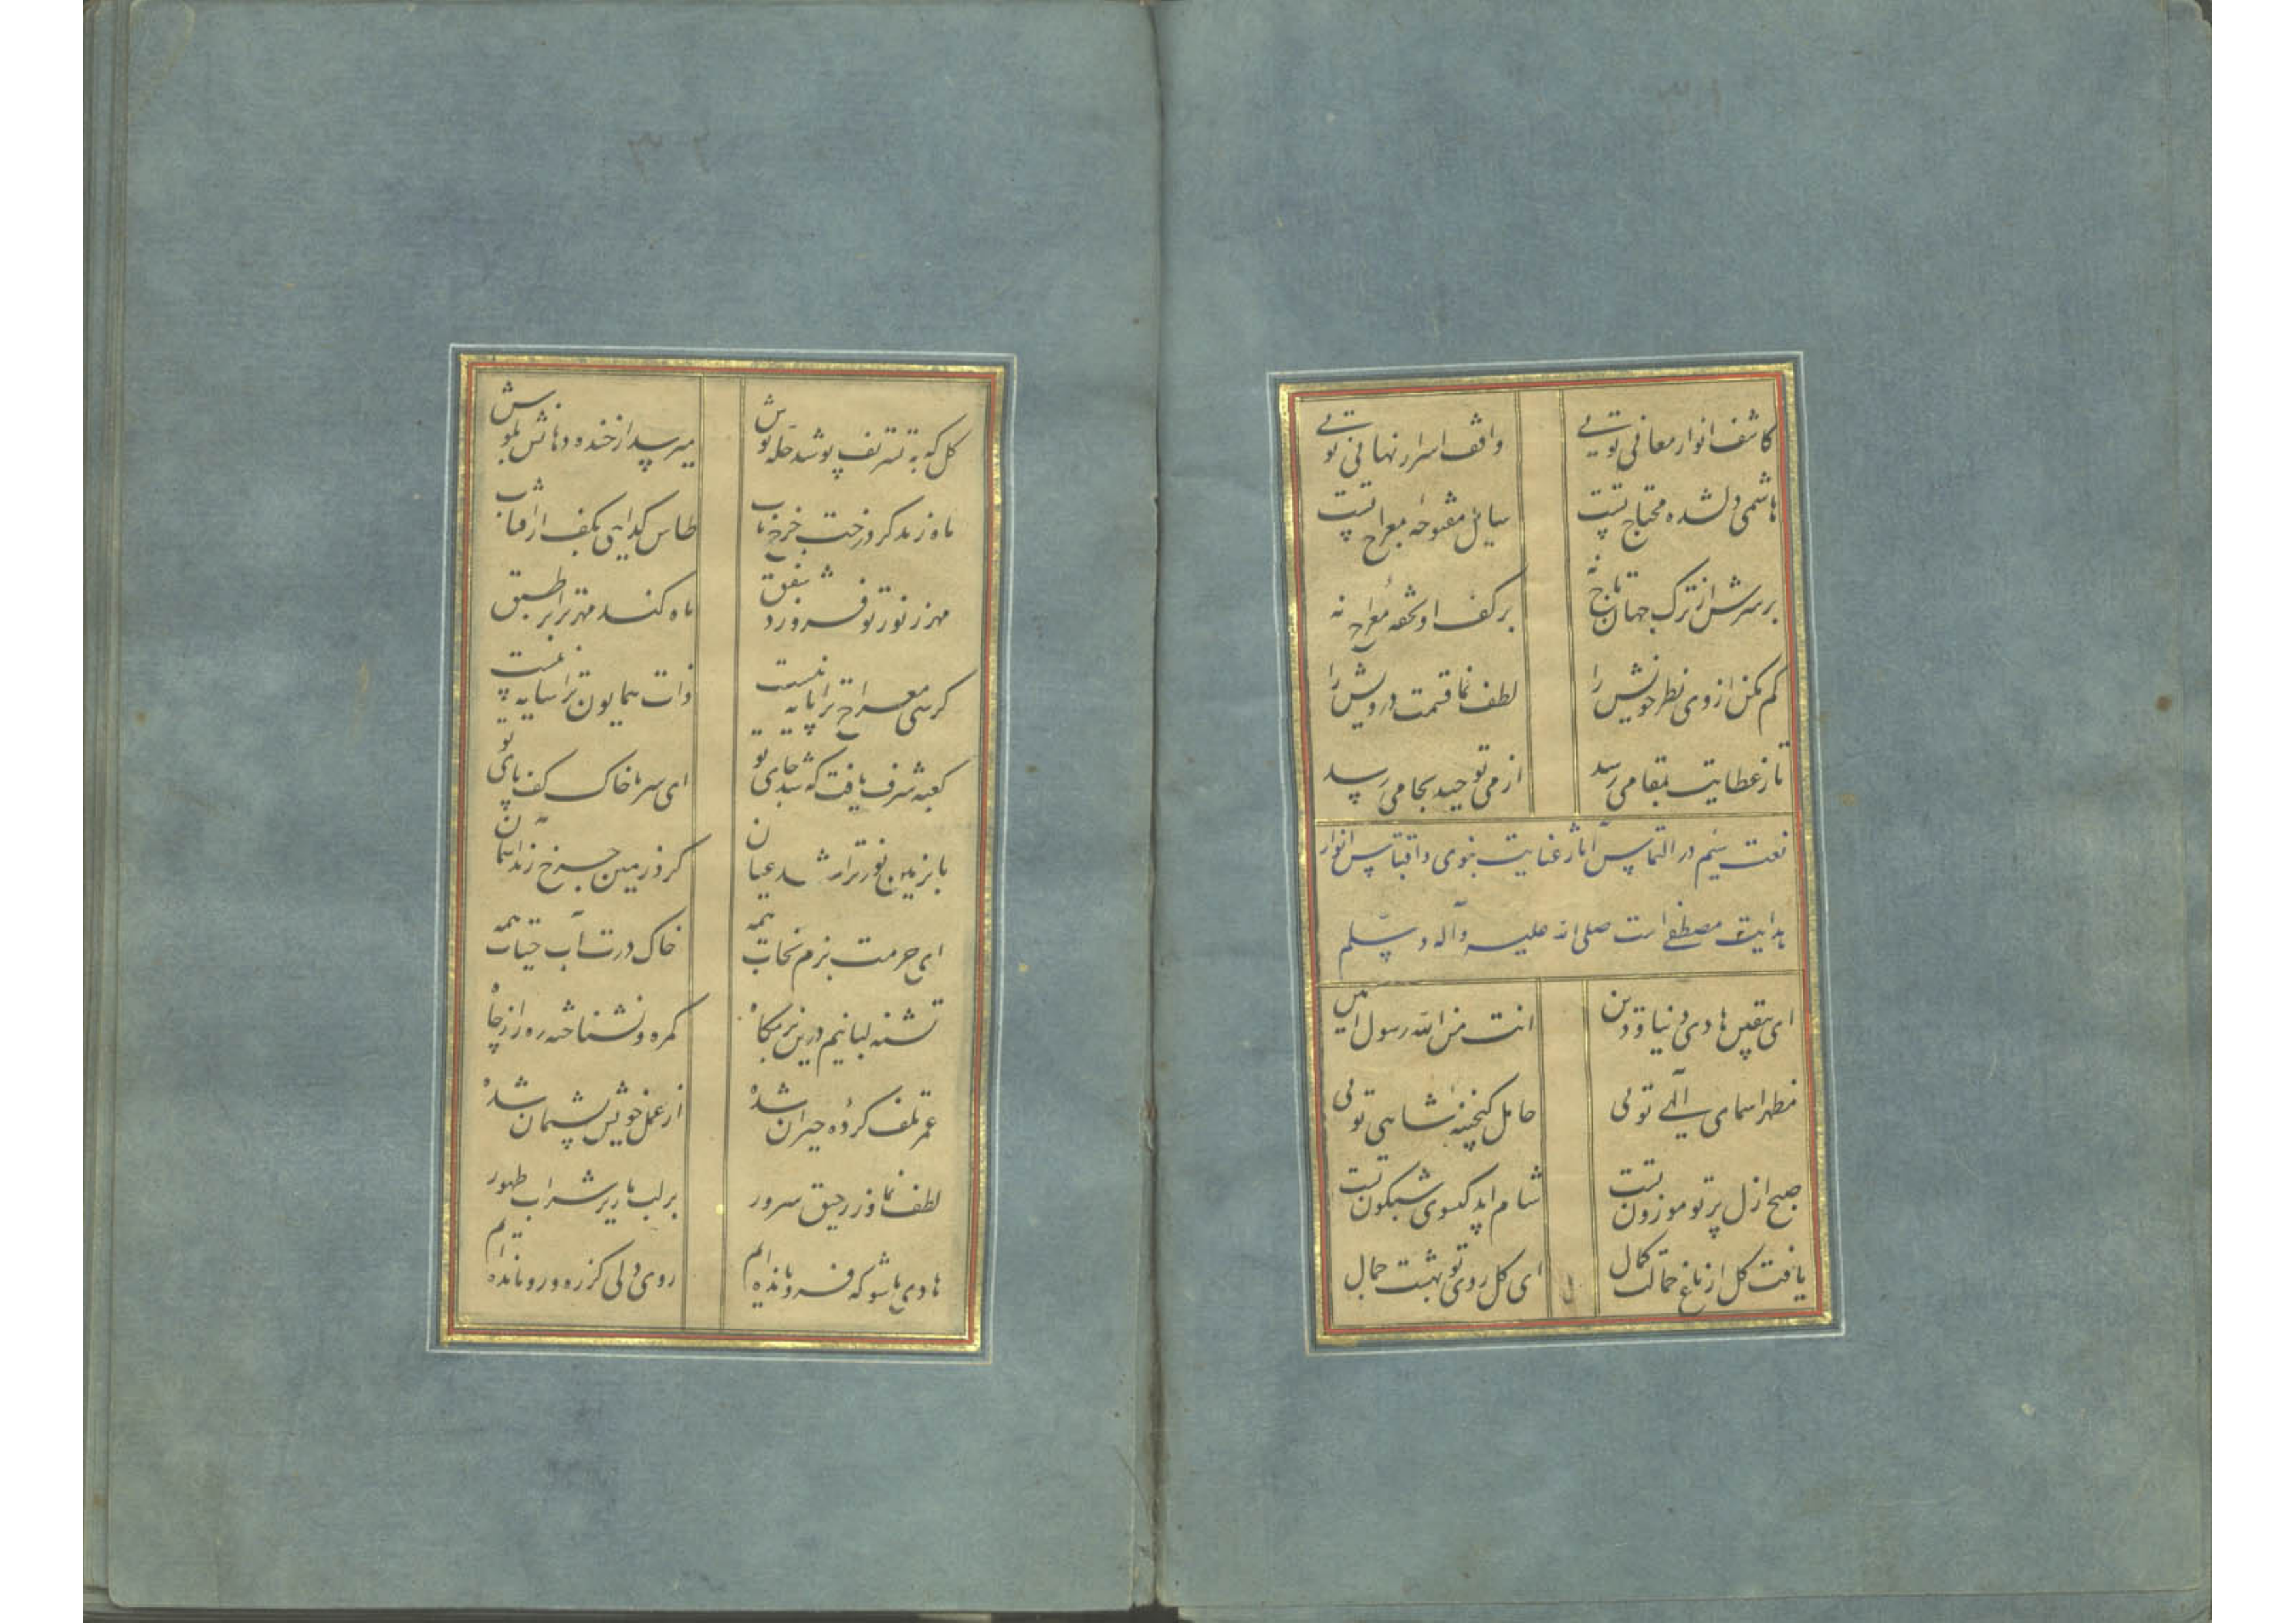 کاشف انوار معانی تویی واقف اسرار نهانی تویی
هاشمی دلشده محتاج تست سایل مفتوحه معراج تست
بر سرش از ترک جهان تاج نه بر کف او تحفه معراج نه
کم مکن از وی نظر خویش را لطف نما قسمت درویش را
تا ز عطایت بمقامی رسد از می توحید بجامی رسد
نعت سیم در التماس آثار عنایت نبوی و اقتباس انوار
هدایت مصطفوی است صلی الله علیه و آله و سلم
ای بیقین هادی دنیا و دین انت من الله رسول امین
مظهر اسمای الهی تویی حامل گنجینه شاهی تویی
صبح ازل پرتو موزون تست شام ابد گیسوی شبگون تست
یافت گل از باغ جمالت کمال ای گل روی تو بهشت جمال
گل که به تشریف پوشد حله پوش میرسد از خنده دهانش بگوش
ماه زند کرد رخت چرخ تاب طاس گدایی بکف از آفتاب
مهر ز نور تو فروزد شفق ماه کند مهر ترا بر طبق
کرسی معراج ترا پایه نیست ذات همایون ترا سایه نیست
کعبه شرف یافت که شد جای تو ای سر ما خاک کف پای تو
تا بزمین نور ترا شد عیان کرد زمین چرخ زند آسمان
ای حرمت بزم نجات همه خاک درت آب حیات همه
تشنه لبانیم درین بزمگاه گمره و نشناخته ره را ز چاه
عمر تلف کرده و حیران شده از عمل خویش پشیمان شده
لطف نما و ز رحیق سرور بر لب ما ریز شراب طهور
هادی ما شو که فرو مانده ایم روی دلی کز ره و رو مانده ایم